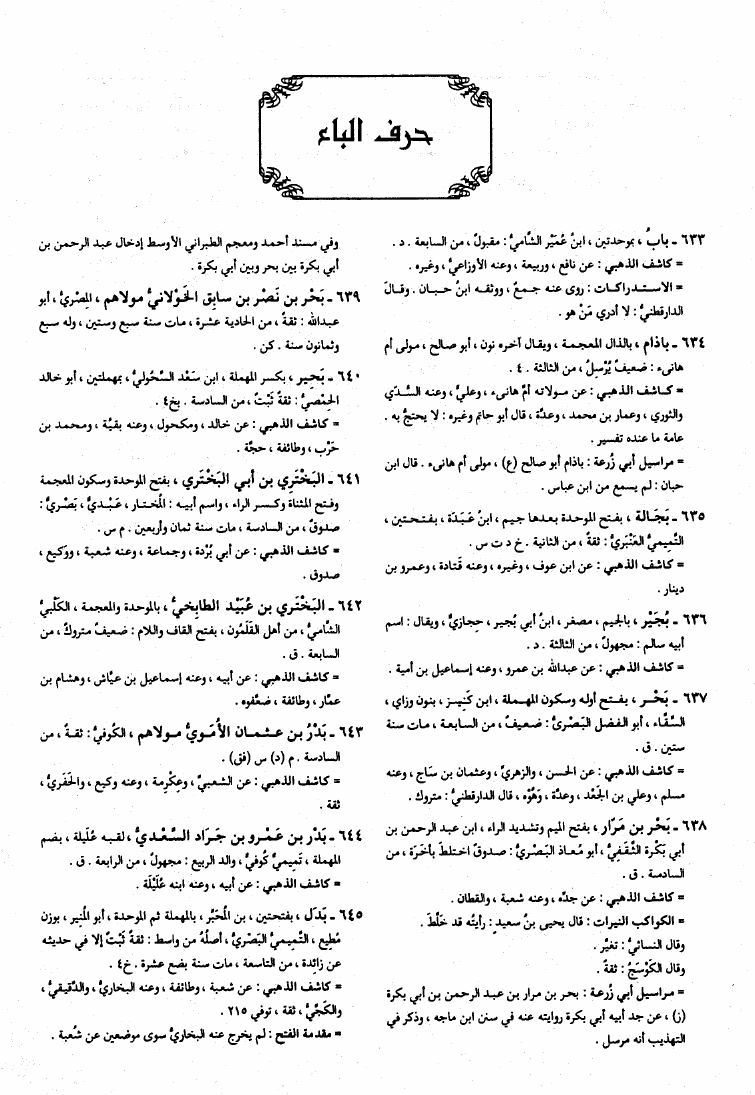 حرف الباء
٦٣٣ - بابُ ، بموحدتين ، ابنُ عُمَيْر الشَّاميُّ : مقبولٌ ، من السابعة . د .
= كاشف الذهبي : عن نافع ، وربيعة ، وعنه الأوزاعيُّ ، وغيره .
= الاستدراكات : روى عنه جمعٌ ، ووثقه ابنُ حبان . وقال
الدارقطنيُّ : لا أدري مَنْ هو .
٦٣٤ - باذام ، بالذال المعجمة ، ويقال آخره نون ، أبو صالح ، مولى أم
هانىء : ضعيفٌ يُرْسِلُ ، من الثالثة . ٤ .
= كاشف الذهبي : عن مولاته أمِّ هانىء ، وعليٍّ ، وعنه السُّدِّي
والثوري ، وعمار بن محمد ، وعدَّة ، قال أبو حاتم وغيره : لا يحتجُّ به .
عامة ما عنده تفسير .
= مراسيل أبي زُرعة : باذام أبو صالح (ع) ، مولى أم هانىء . قال ابن
حبان : لم يسمع من ابن عباس .
٦٣٥ - بَجَالة ، بفتح الموحدة بعدها جيم ، ابنُ عَبَدَة ، بفتحتين ،
التَّميميُّ العَنْبَريُّ : ثقةٌ ، من الثانية . خ د ت س .
= كاشف الذهبي : عن ابن عوف ، وغيره ، وعنه قَتادة ، وعمرو بن
دينار .
٦٣٦ - بُجَيْر ، بالجيم ، مصغر ، ابنُ أبي بُجير ، حِجازيٌّ ، ويقال : اسم
أبيه سالم : مجهولٌ ، من الثالثة . د .
= كاشف الذهبي : عن عبدالله بن عمرو ، وعنه إسماعيل بن أمية .
٦٣٧ - بَحْر ، بفتح أوله وسكون المهملة ، ابن كَنِيز ، بنون وزاي ،
السَّقَّاء ، أبو الفضل البَصْريُّ : ضعيفٌ ، من السابعة ، مات سنة
ستين . ق .
= كاشف الذهبي : عن الحسن ، والزهريِّ ، وعثمان بن سَاج ، وعنه
مسلم ، وعلي بن الجَعْد ، وعدَّة ، وَهَّوْه ، قال الدارقطنيُّ : متروك .
٦٣٨ - بَحْر بن مَرّار ، بفتح الميم وتشديد الراء ، ابن عبد الرحمن بن
أبي بَكْرة الثَّقَفيُّ ، أبو مُعاذ البَصْريُّ : صدوقٌ اختلطَ بأخَرَة ، من
السادسة . ق .
= كاشف الذهبي : عن جدِّه ، وعنه شعبة ، والقطان .
= الكواكب النيرات : قال يحيى بنُ سعيد : رأيتُه قد خلَّطَ .
وقال النسائيُّ : تغيَّر .
وقال الكَوْسَجُ : ثقةٌ .
= مراسيل أبي زُرعة : بحر بن مرار بن عبد الرحمن بن أبي بكرة
(ز) ، عن جد أبيه أبي بكرة روايته عنه في سنن ابن ماجه ، وذكر في
التهذيب أنه مرسل .
وفي مسند أحمد ومعجم الطبراني الأوسط إدخال عبد الرحمن بن
أبي بكرة بين بحر وبين أبي بكرة .
٦٣٩ - بَحْر بن نَصْر بن سابِق الخَوْلانيُّ مولاهم ، المِصْريُّ ، أبو
عبدالله : ثقةٌ ، من الحادية عشرة ، مات سنة سبع وستين ، وله سبع
وثمانون سنة . كن .
٦٤٠ - بَحِير ، بكسر المهملة ، ابن سَعْد السَّحُوليُّ ، بمهملتين ، أبو خالد
الحِمْصيُّ : ثقةٌ ثَبْتٌ ، من السادسة . بخ ٤ .
= كاشف الذهبي : عن خالد ، ومكحول ، وعنه بقيَّة ، ومحمد بن
حَرْب ، وطائفة ، حجَّة .
٦٤١ - البَخْتَرِي بن أبي البَخْتَرِي ، بفتح الموحدة وسكون المعجمة
وفتح المثناة وكسر الراء ، واسم أبيه : المُختار ، عَبْديٌّ ، بَصْريٌّ :
صدوقٌ ، من السادسة ، مات سنة ثمان وأربعين . م س .
= كاشف الذهبي : عن أبي بُرْدة ، وجماعة ، وعنه شعبة ، ووكيع ،
صدوق .
٦٤٢ - البَخْتَري بن عُبَيْد الطابِخيُّ ، بالموحدة والمعجمة ، الكَلْبيُّ
الشَّاميُّ ، من أهل القَلَمُون ، بفتح القاف واللام : ضعيفٌ متروكٌ ، من
السابعة . ق .
= كاشف الذهبي : عن أبيه ، وعنه إسماعيل بن عيَّاش ، وهشام بن
عمَّار ، وطائفة ، ضعَّفوه .
٦٤٣ - بَدْرُ بن عثمان الأُمَويُّ مولاهم ، الكُوفيُّ : ثقةٌ ، من
السادسة . م (د) س (فق) .
= كاشف الذهبي : عن الشعبيِّ ، وعِكْرِمة ، وعنه وكيع ، والحَفَريُّ ،
ثقة .
٦٤٤ - بَدْر بن عَمْرو بن جَرَاد السَّعْديُّ ، لقبه عُلَيلة ، بضم
المهملة ، تَميميٌّ كُوفيٌّ ، والد الربيع : مجهولٌ ، من الرابعة . ق .
= كاشف الذهبي : عن أبيه ، وعنه ابنه عُلَيْلَة .
٦٤٥ - بَدَل ، بفتحتين ، بن المُحَبَّر ، بالمهملة ثم الموحدة ، أبو المُنِير ، بوزن
مُطِيع ، التَّميميُّ البَصْريُّ ، أصلُه من واسط : ثقةٌ ثَبْتٌ إلا في حديثه
عن زائدة ، من التاسعة ، مات سنة بضع عشرة . خ ٤ .
= كاشف الذهبي : عن شعبة ، وطائفة ، وعنه البخاريُّ ، والدَّقيقيُّ ،
والكَجِّيُّ ، ثقة ، توفي ٢١٥ .
= مقدمة الفتح : لم يخرج عنه البخاريُّ سوى موضعين عن شُعبة .